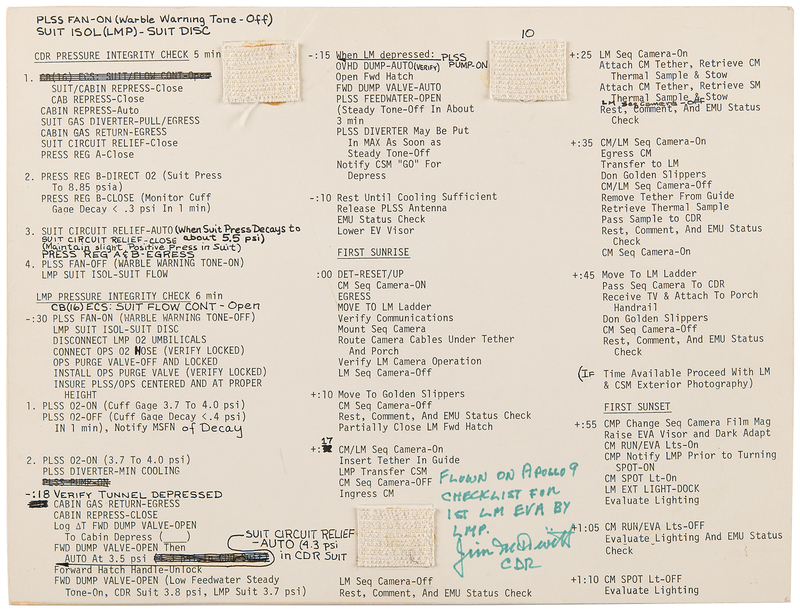 PLSS FAN-ON (Warble Warning Tone-Off)
SUIT ISOL (LMP) - SUIT DISC
CDR PRESSURE INTEGRITY CHECK 5 min
1. CB(16) ECS: SUIT/FLOW CONT-Open
SUIT/CABIN REPRESS-Close
CAB REPRESS-Close
CABIN REPRESS-Auto
SUIT GAS DIVERTER-PULL/EGRESS
CABIN GAS RETURN-EGRESS
SUIT CIRCUIT RELIEF-Close
PRESS REG A-Close
2. PRESS REG B-DIRECT O2 (Suit Press
To 8.85 psia)
PRESS REG B-CLOSE (Monitor Cuff
Gage Decay < .3 psi In 1 min)
3. SUIT CIRCUIT RELIEF-AUTO (When Suit Press Decays to
SUIT CIRCUIT RELIEF-CLOSE about 5.5 psi)
(Maintain slight Positive Press in Suit)
PRESS REG A & B-EGRESS
4. PLSS FAN-OFF (WARBLE WARNING TONE-ON)
LMP SUIT ISOL-SUIT FLOW
LMP PRESSURE INTEGRITY CHECK 6 min
CB(16) ECS: SUIT FLOW CONT - Open
-:30 PLSS FAN-ON (WARBLE WARNING TONE-OFF)
LMP SUIT ISOL-SUIT DISC
DISCONNECT LMP O2 UMBILICALS
CONNECT OPS O2 HOSE (VERIFY LOCKED)
OPS PURGE VALVE-OFF AND LOCKED
INSTALL OPS PURGE VALVE (VERIFY LOCKED)
INSURE PLSS/OPS CENTERED AND AT PROPER
HEIGHT
1. PLSS O2-ON (Cuff Gage 3.7 To 4.0 psi)
PLSS O2-OFF (Cuff Gage Decay <.4 psi)
IN 1 min), Notify MSFN of Decay
2. PLSS O2-ON (3.7 To 4.0 psi)
PLSS DIVERTER-MIN COOLING
PLSS PUMP-ON
-:18 VERIFY TUNNEL DEPRESSED
CABIN GAS RETURN-EGRESS
CABIN REPRESS-CLOSE
Log ΔT FWD DUMP VALVE-OPEN
To Cabin Depress (____)
FWD DUMP VALVE-OPEN Then
AUTO At 3.5
SUIT CIRCUIT RELIEF
-AUTO (4.3 psi
in CDR SUIT
Forward Hatch Handle-Unlock
FWD DUMP VALVE-OPEN (Low Feedwater Steady
Tone-On, CDR Suit 3.8 psi, LMP Suit 3.7 psi)
-:15 When LM depressed: PLSS
PUMP-ON
OVHD DUMP-AUTO (VERIFY)
Open Fwd Hatch
FWD DUMP VALVE-AUTO
PLSS FEEDWATER-OPEN
(Steady Tone-Off In About
3 min
PLSS DIVERTER May Be Put
In MAX As Soon as
Steady Tone-Off
Notify CSM "GO" For
Depress
-:10 Rest Until Cooling Sufficient
Release PLSS Antenna
EMU Status Check
Lower EV Visor
FIRST SUNRISE
:00 DET-RESET/UP
CM Seq Camera-ON
EGRESS
MOVE TO LM Ladder
Verify Communications
Mount Seq Camera
Route Camera Cables Under Tether
And Porch
Verify LM Camera Operation
LM Seq Camera-Off
+:10 Move To Golden Slippers
CM Seq Camera-Off
Rest, Comment, And EMU Status Check
Partially Close LM Fwd Hatch
+:17 CM/LM Seq Camera-On
Insert Tether In Guide
LMP Transfer CSM
CM Seq Camera-Off
Ingress CM
FLOWN ON APOLLO 9
CHECKLIST FOR
1ST LM EVA BY
LMP.
Jim McDivitt
CDR
LM Seq Camera-Off
Rest, Comment, And EMU Status Check
10
+:25 LM Seq Camera-On
Attach CM Tether, Retrieve CM
Thermal Sample & Stow
Attach CM Tether, Retrieve SM
Thermal Sample & Stow
LM Seq Camera-OFF
Rest, Comment, And EMU Status
Check
+:35 CM/LM Seq Camera-On
Egress CM
Transfer to LM
Don Golden Slippers
CM/LM Seq Camera-Off
Remove Tether From Guide
Retrieve Thermal Sample
Pass Sample to CDR
Rest, Comment, And EMU Status
Check
CM Seq Camera-On
+:45 Move To LM Ladder
Pass Seq Camera To CDR
Receive TV & Attach To Porch
Handrail
Don Golden Slippers
CM Seq Camera-Off
Rest, Comment, And EMU Status
Check
(IF Time Available Proceed With LM
& CSM Exterior Photography)
FIRST SUNSET
+:55 CMP Change Seq Camera Film Mag
Raise EVA Visor and Dark Adapt
CM RUN/EVA Lts-On
CMP Notify LMP Prior to Turning
SPOT-ON
CM SPOT Lt-On
LM EXT LIGHT-DOCK
Evaluate Lighting
+1:05 CM RUN/EVA Lts-OFF
Evaluate Lighting And EMU Status
Check
+1:10 CM SPOT Lt-OFF
Evaluate Lighting